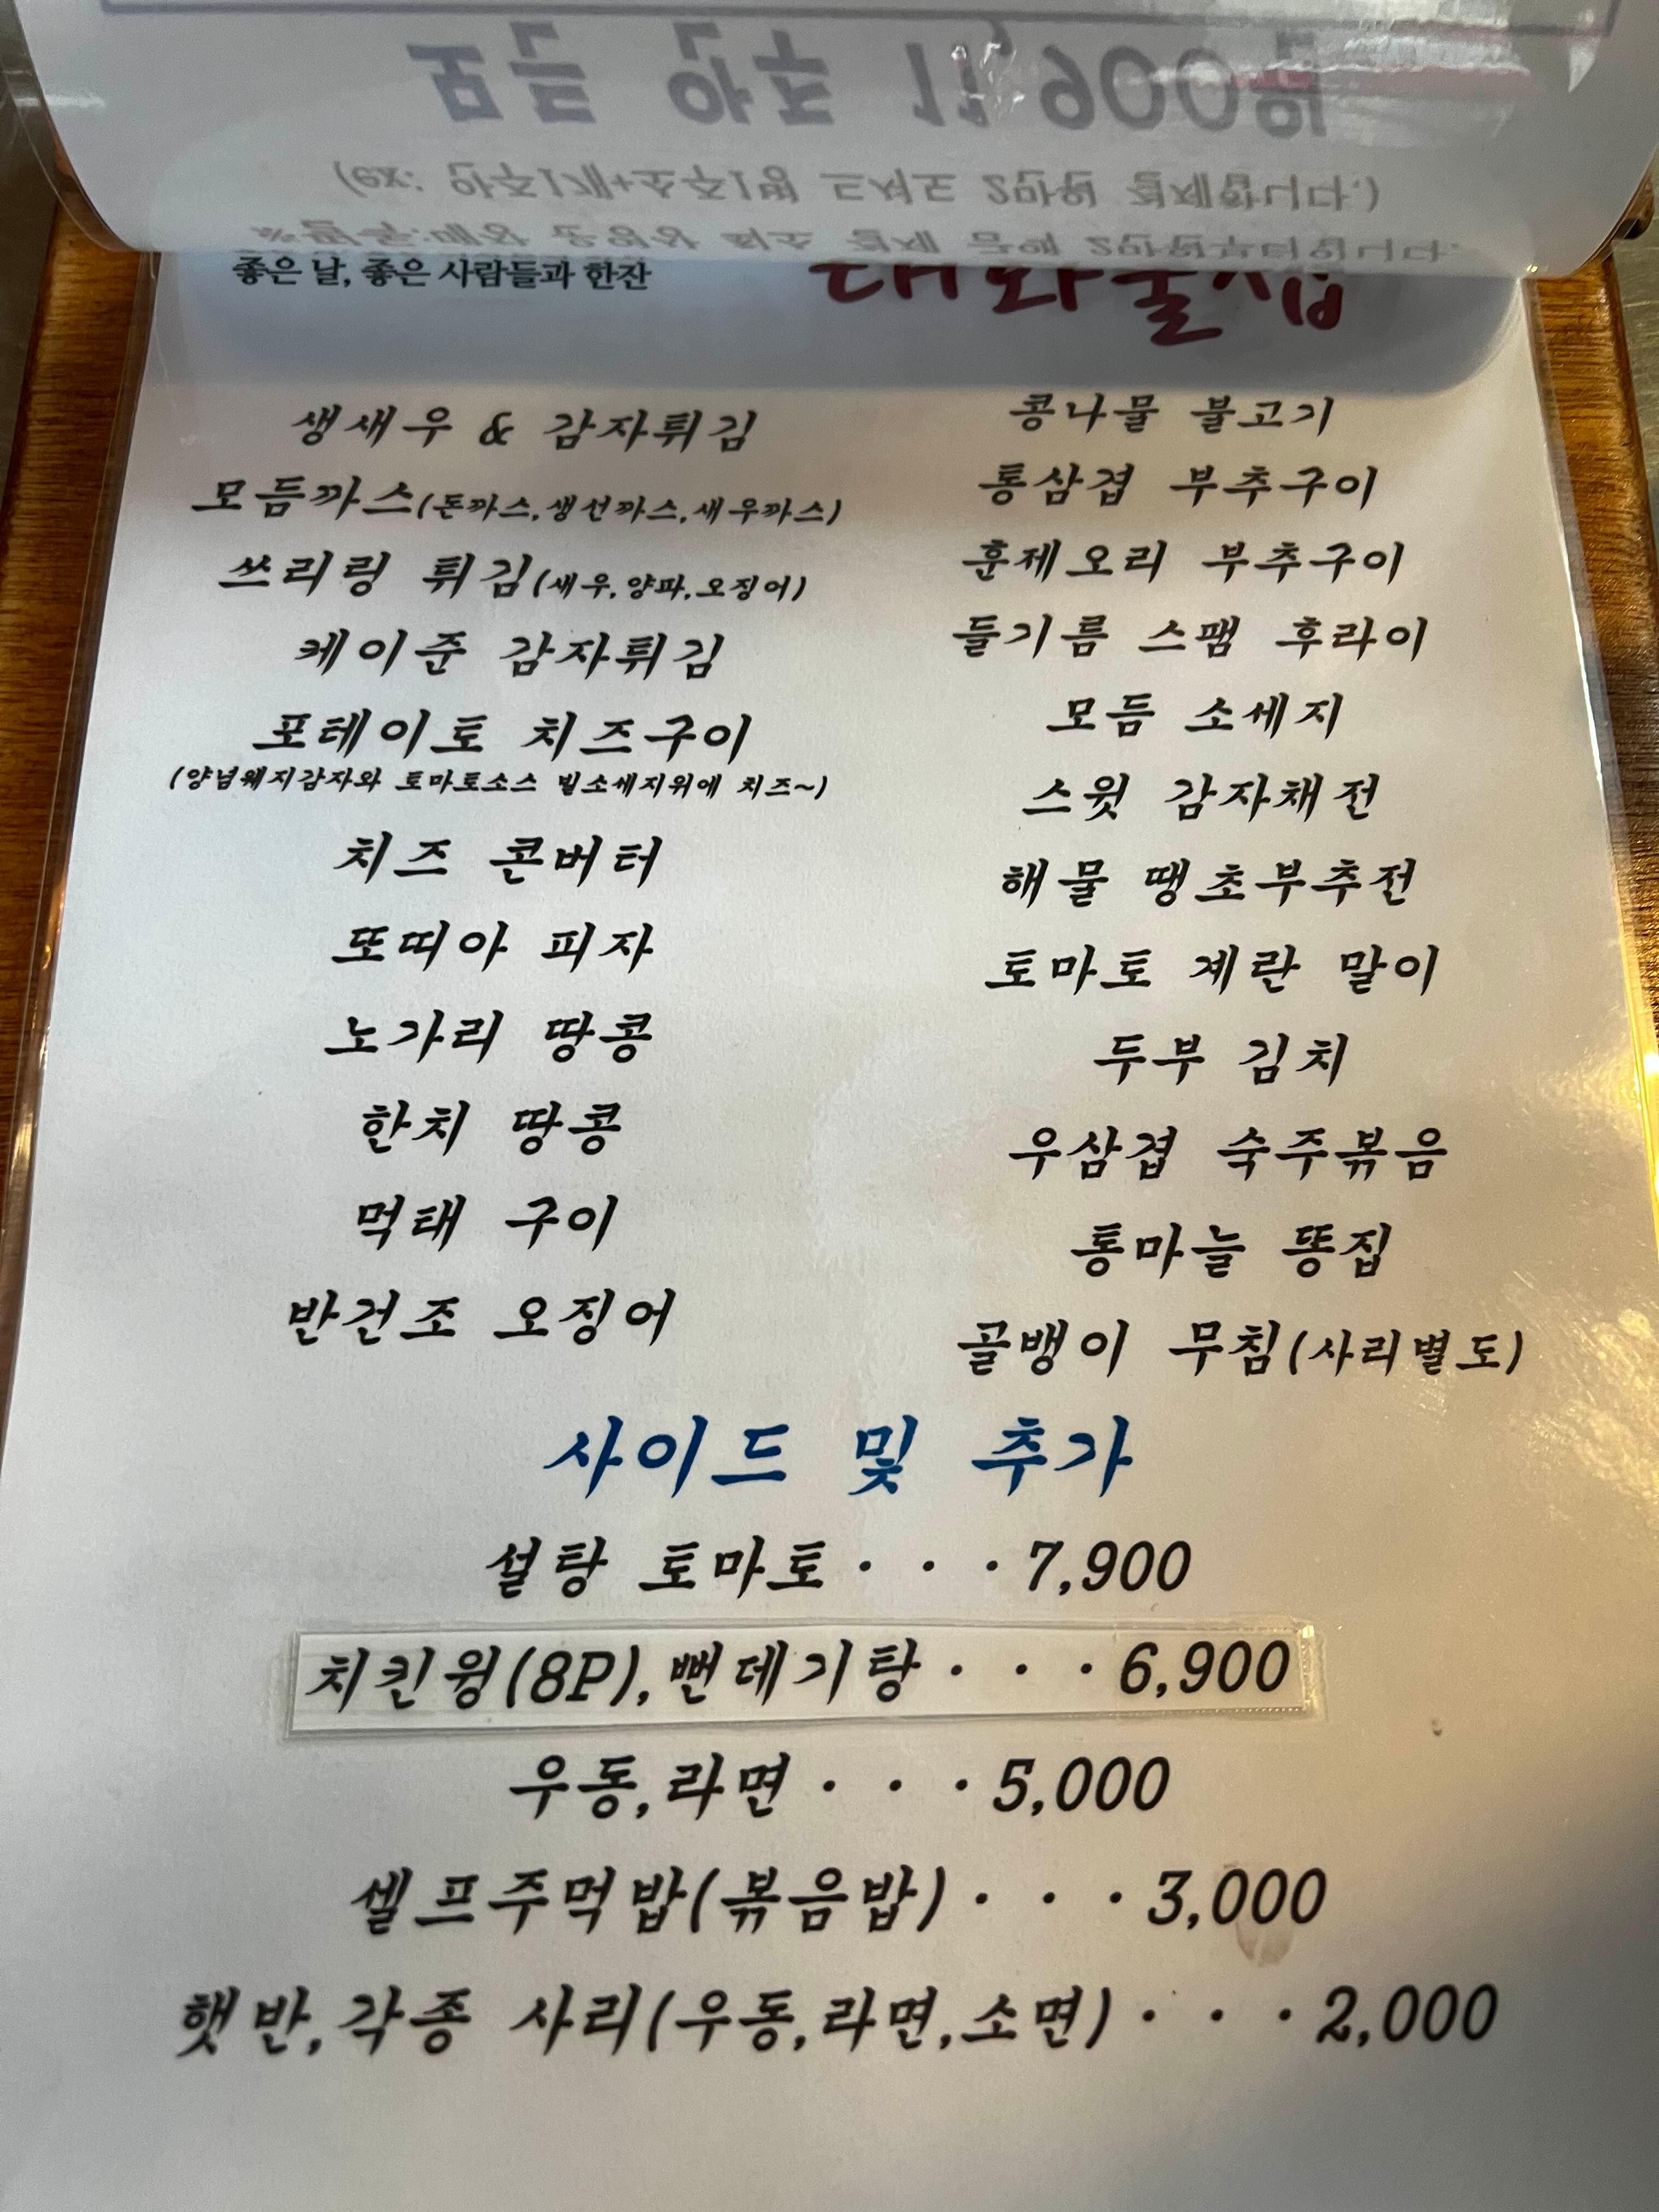 모든 안주 11,900원
(ex: 안주1개+소주1병 드셔도 2만원 결제됩니다.)
좋은 날, 좋은 사람들과 한잔
대화술집
생새우 & 감자튀김
모듬까스(돈까스,생선까스,새우까스)
쓰리링 튀김(새우,양파,오징어)
케이준 감자튀김
포테이토 치즈구이
(양념웨지감자와 토마토소스 빌소세지위에 치즈~)
치즈 콘버터
또띠아 피자
노가리 땅콩
한치 땅콩
먹태 구이
반건조 오징어
콩나물 불고기
통삼겹 부추구이
훈제오리 부추구이
들기름 스팸 후라이
모듬 소세지
스윗 감자채전
해물 땡초부추전
토마토 계란 말이
두부 김치
우삼겹 숙주볶음
통마늘 똥집
골뱅이 무침(사리별도)
사이드 및 추가
설탕 토마토···7,900
치킨윙(8P),뻔데기탕···6,900
우동,라면···5,000
셀프주먹밥(볶음밥)···3,000
햇반,각종 사리(우동,라면,소면)···2,000